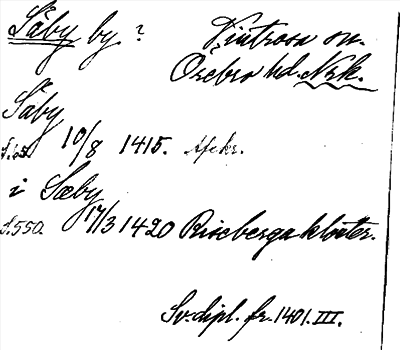 Säby by ? Vintrosa sn.
Örebro hd. Nrk.
Säby
10/8 1415. Afskr.
i Sæby
s. 550. 17/3 1420 Riseberga kloster.
Sv. dipl. fr. 1401. III.